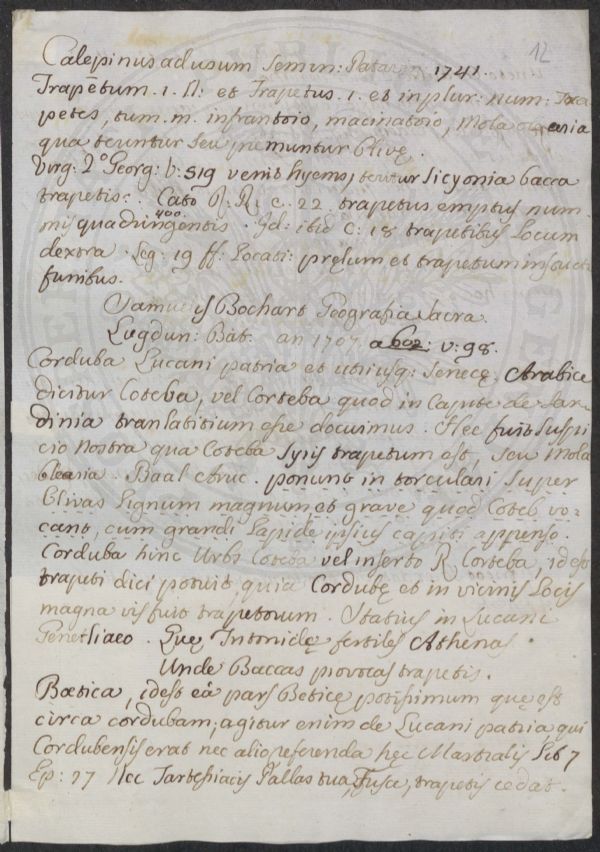 12
Calepinus ad usum Semin: Patavin: 1741.
Trapētum. i. N: et Trapetus. i. et in plur: num: Tra
petes, tum. m. infrantoio, macinatoio, Mola olearia
qua teruntur seu premuntur Olivę.
Virg: 2º Georg: v: 519 venit hyems, teritur Sicyonia bacca
trapetis: Cato R. R. c. 22 trapetus emptus num
mis quadringentis 400. Id: ibid C: 18 trapetibus Locum
dextra. Leg: 19 ff: Locati: pręlum et trapetum instructū
funibus.
Samuelis Bochart Geografia Sacra.
Lugdun: Bat: an 1707. a 602: v: 98.
Corduba Lucani patria et utriusq: Senecę. Arabice
dicitur Coteba, vel Corteba quod in Capite de Sar-
dinia translatitium esse docuimus. Hec fuit suspi
cio nostra qua Coteba Syris trapetum est, seu Mola
Olearia. Baal Aruc. ponunt in torculari super
Olivas Lignum magnum et grave quod Coteb vo-
cant, cum grandi Lapide ipsius capiti appenso.
Corduba hinc Urbs Coteba vel inserto R Corteba, idest
trapeti dici potuit, quia Cordubę et in vicinis Locis
magna vis fuit trapetorum. Statius in Lucani
Genetliaco. Quę Tritonidę fertiles Athenas
Unde Baccas provocas trapetis.
Bœtica, idest ea pars Beticę potissimum quę est
circa Cordubam; agitur enim de Lucani patria, qui
Cordubensis erat nec alio referenda hęc Martialis Lib 7
Ep: 27 Nec Tartessiacis Pallas tua, Fusce, trapetis cedat.